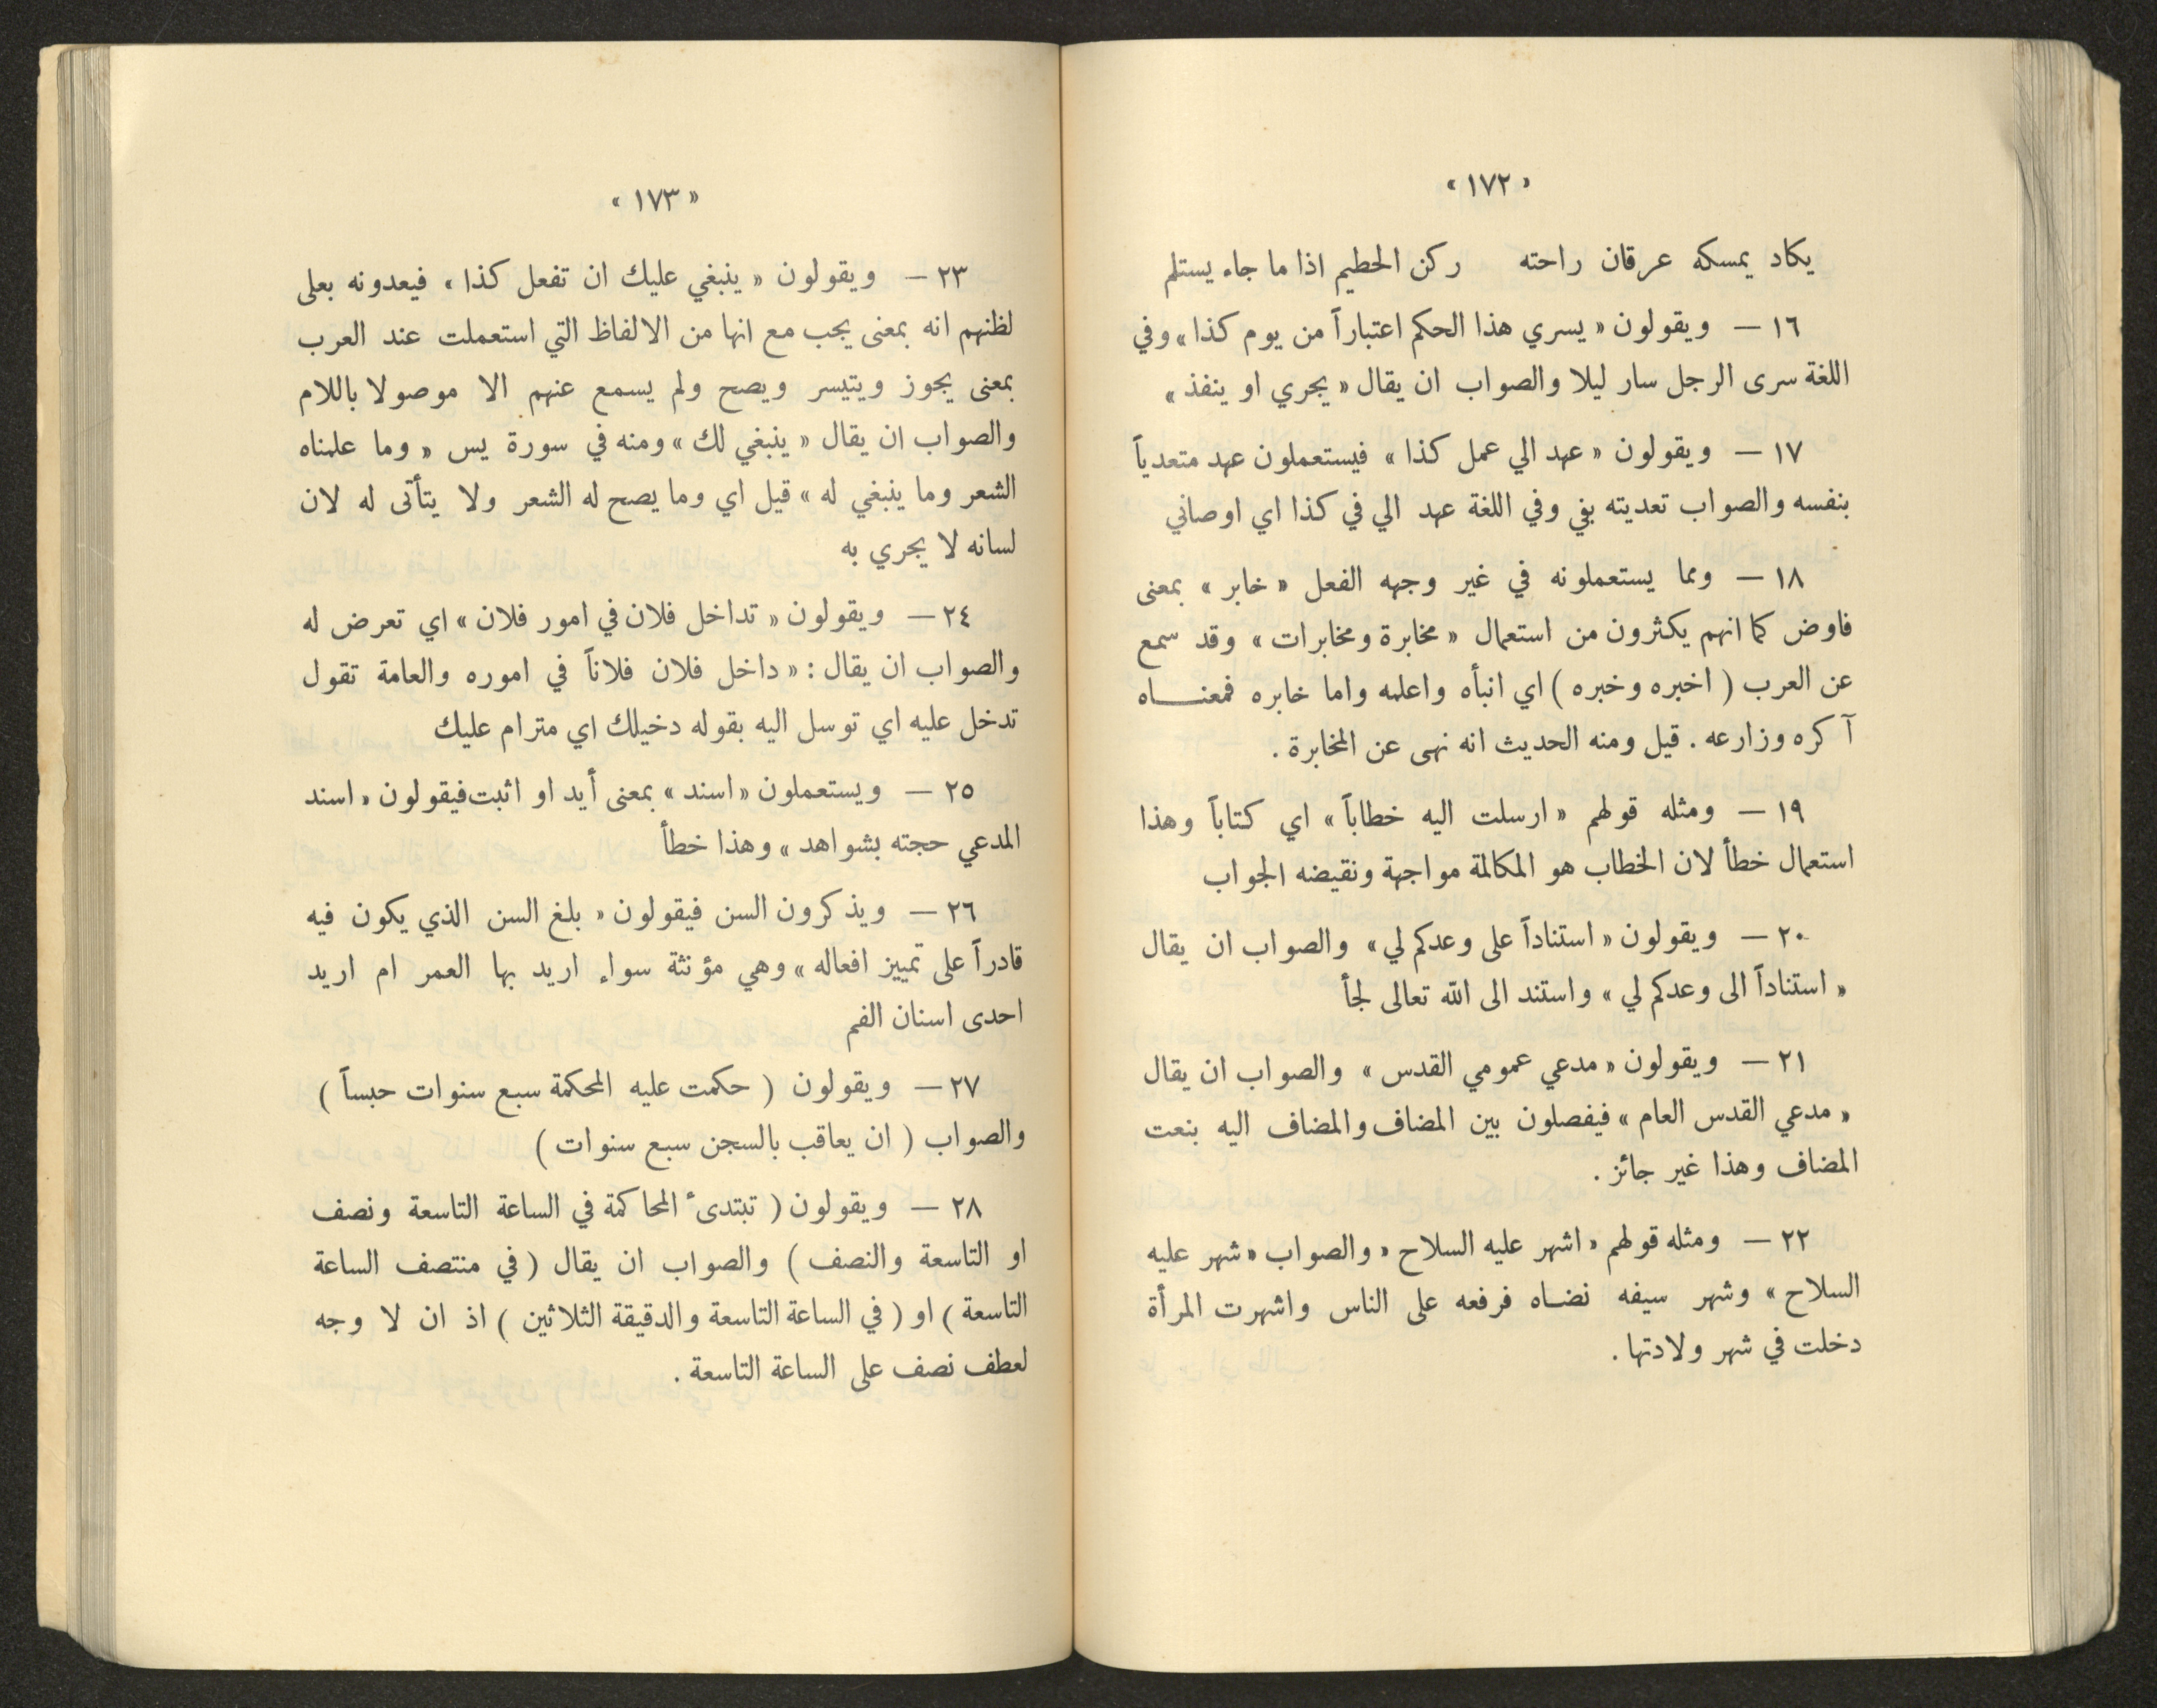 « ١٧٢ »
يكاد يمسكه عرفان راحته ركن الحطيم اذا ما جاء يستلم
١٦ — ويقولون « يسري هذا الحكم اعتباراً من يوم كذا » وفي
اللغة سرى الرجل سار ليلا والصواب ان يقال « يجري او ينفذ »
١٧ — ويقولون « عهد الي عمل كذا » فيستعملون عهد متعدياً
بنفسه والصواب تعديته بفي وفي اللغة عهد الي في كذا اي اوصاني
١٨ — ومما يستعملونه في غير وجهه الفعل « خابر » بمعنى
فاوض كما انهم يكثرون من استعمال « مخابرة ومخابرات » وقد سمع
عن العرب ( اخبره وخبره ) اي انبأه واعلمه واما خابره فمعنـــاه
آكره وزارعه . قيل ومنه الحديث انه نهى عن المخابرة .
١٩ — ومثله قولهم « ارسلت اليه خطاباً » اي كتاباً وهذا
استعمال خطأ لان الخطاب هو المكالمة مواجهة ونقيضه الجواب
٢٠ — ويقولون « استناداً على وعدكم لي » والصواب ان يقال
« استناداً الى وعدكم لي » واستند الى الله تعالى لجأ
٢١ — ويقولون « مدعي عمومي القدس » والصواب ان يقال
« مدعي القدس العام » فيفصلون بين المضاف والمضاف اليه بنعت
المضاف وهذا غير جائز .
٢٢ — ومثله قولهم « اشهر عليه السلاح « والصواب « شهر عليه
السلاح » وشهر سيفه نضاه فرفعه على الناس واشهرت المرأة
دخلت في شهر ولادتها .
« ١٧٣ »
٢٣ — ويقولون « ينبغي عليك ان تفعل كذا » فيعدونه بعلى
لظنهم انه بمعنى يجب مع انها من الالفاظ التي استعملت عند العرب
بمعنى يجوز ويتيسر ويصح ولم يسمع عنهم الا موصولا باللام
والصواب ان يقال « ينبغي لك » ومنه في سورة يس « وما علمناه
الشعر وما ينبغي له » قيل اي وما يصح له الشعر ولا يتأتى له لان
لسانه لا يجري به
٢٤ — ويقولون « تداخل فلان في امور فلان » اي تعرض له
والصواب ان يقال : « داخل فلان فلاناً في اموره والعامة تقول
تدخل عليه اي توسل اليه بقوله دخيلك اي مترام عليك
٢٥ — ويستعملون « اسند » بمعنى أيد او اثبت فيقولون « اسند
المدعي حجته بشواهد » وهذا خطأ
٢٦ — ويذكرون السن فيقولون « بلغ السن الذي يكون فيه
قادراً على تمييز افعاله » وهي مؤنثة سواء اريد بها العمر ام اريد
احدى اسنان الفم
٢٧ — ويقولون ( حكمت عليه المحكمة سبع سنوات حبساً )
والصواب ( ان يعاقب بالسجن سبع سنوات )
٢٨ — ويقولون ( تبتدئ المحاكمة في الساعة التاسعة ونصف
او التاسعة والنصف ) والصواب ان يقال ( في منتصف الساعة
التاسعة ) او ( في الساعة التاسعة والدقيقة الثلاثين ) اذ ان لا وجه
لعطف نصف على الساعة التاسعة .